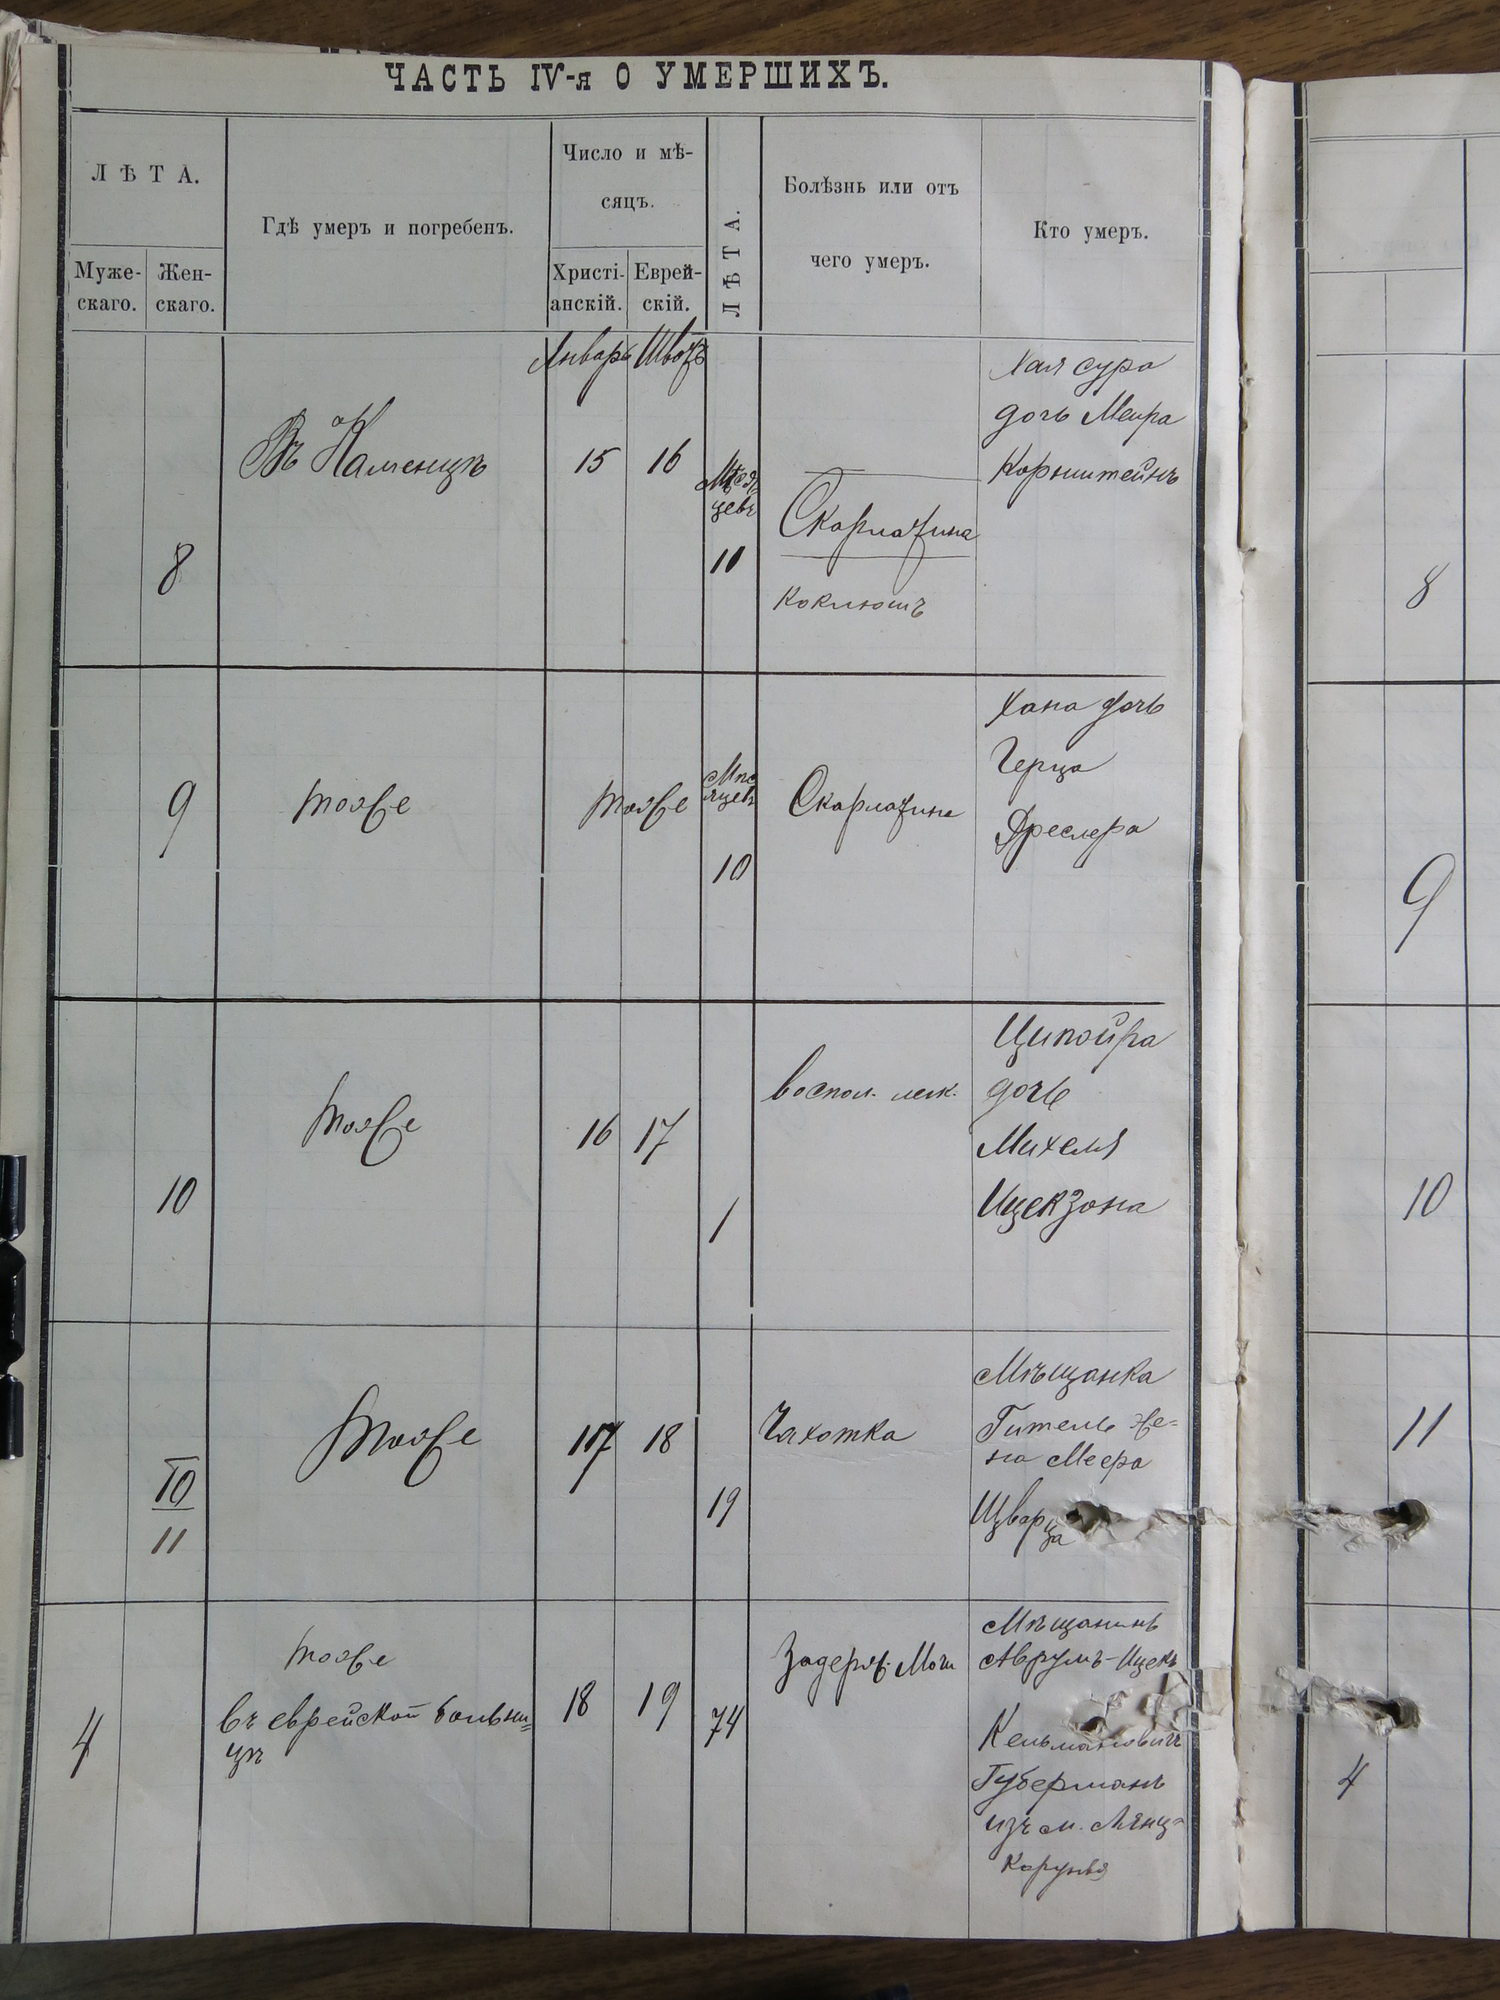 ЧАСТЬ IV-я О УМЕРШИХЪ.
ЛѢТА.
Муже-
скаго.
Жен-
скаго.
Гдѣ умеръ и погребенъ.
Число и мѣ-
сяцъ.
Христі-
анскій.
Еврей-
скій.
ЛѢТА.
Болѣзнь или отъ
чего умеръ.
Кто умеръ.
Январь Швотъ
8
Въ Каменцѣ
15 16
Мѣся-
цевъ
10
Скарлатина
коклюшъ
Хая сура
дочь Меира
Корнштейнъ
8
9
тоже
тоже
Мѣс
яцевъ
10
Скарлатина
Хана дочь
Герца
Дреслера
9
10
тоже
16 17
1
воспол. легк.
Ципойра
дочь
Михеля
Ицекзона
10
10
11
тоже
17 18
19
Чахотка
Мѣщанка
Гитель же=
на Меера
Шварца
11
4
тоже
въ еврейской больни=
цѣ
18 19
74
Задерж. Мочи
Мѣщанинъ
Аврумъ-Ицекъ
Кельмановичъ
Губерманъ
изъ м. Лянц-
коруня
4